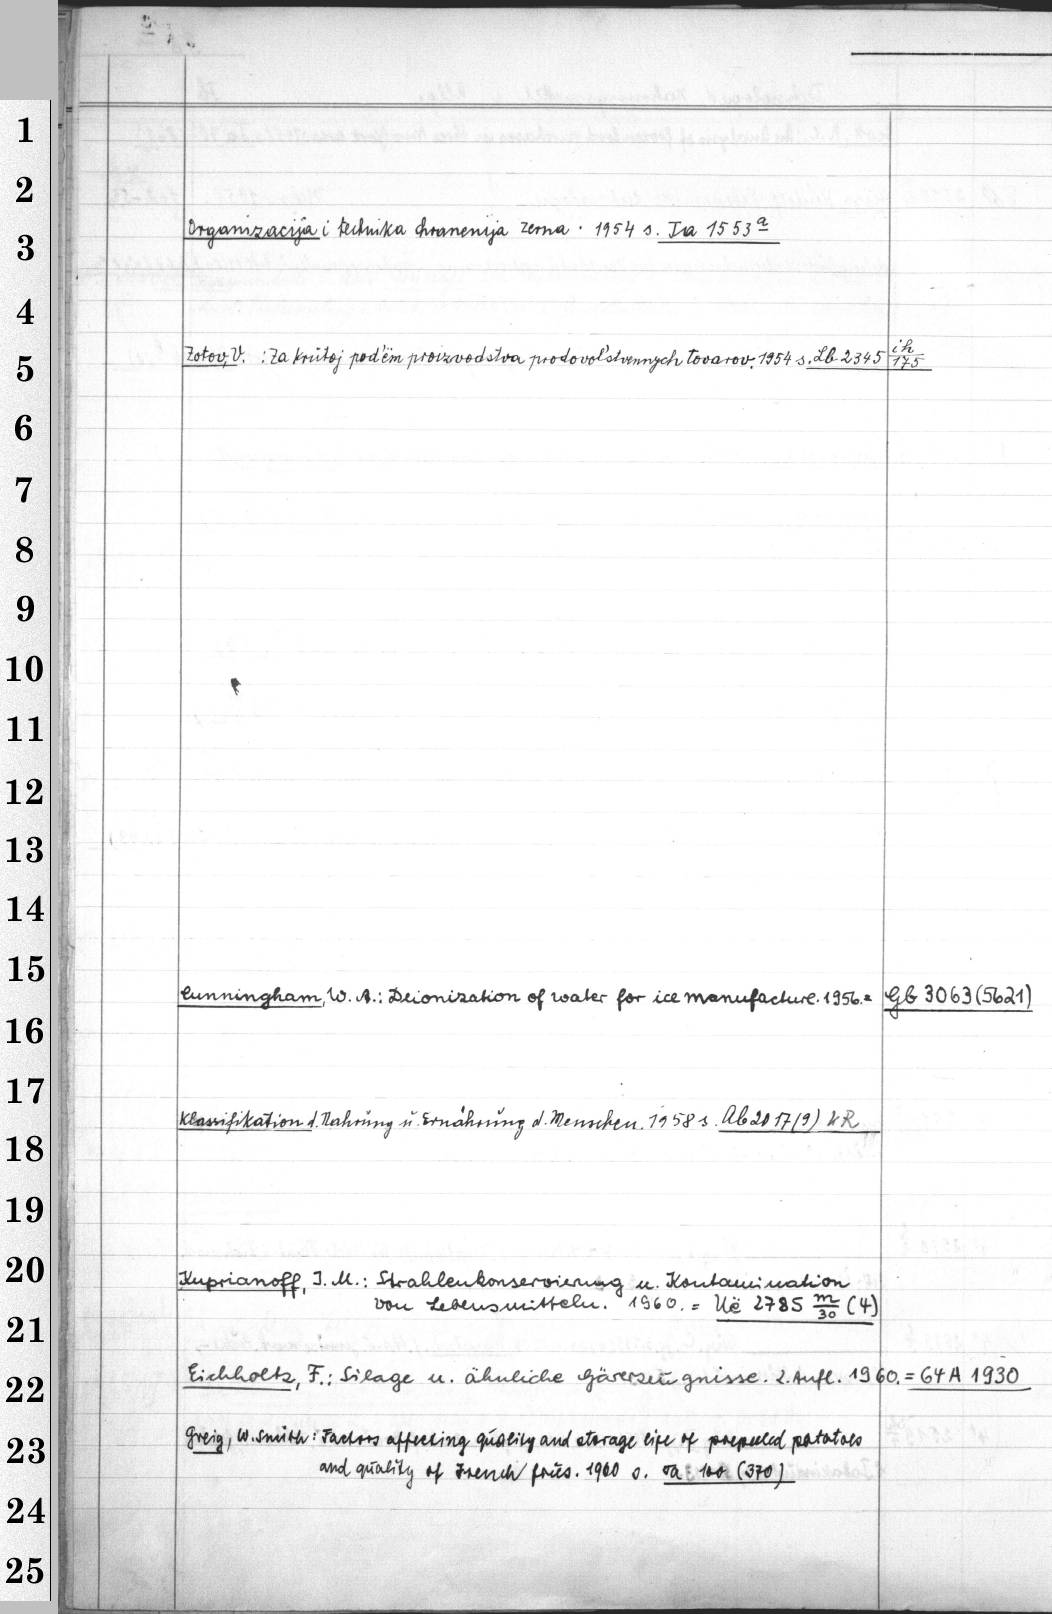 1
2
Organizacija i technika chranenija zerna. 1954 s. Ia 1553 a
3
4
Zotov, V. : Za krutoj pod'ëm proizvodstva prodovol'stvennych tovarov. 1954 s. Lb 2345 ih/175
5
6
7
8
9
10
11
12
13
14
15
Cunningham, W. A.: Deionization of water for ice manufacture. 1956. = Gb 3063 (5621)
16
17
Klassifikation d. Nahrung u. Ernährung d. Menschen. 1958 s. Ab 2017 (9) KR
18
19
20
Kuprianoff, J. M.: Strahlenkonservierung u. Kontamination
von Lebensmitteln. 1960. = Uë 2785 m/30 (4)
21
Eichholtz, F.: Silage u. ähnliche Gärerzeugnisse. 2. Aufl. 1960. = 64 A 1930
22
Greig, W. Smith: Factors affecting quality and storage life of prepeeled potatoes
23
and quality of French fries. 1960 s. (370)
24
25